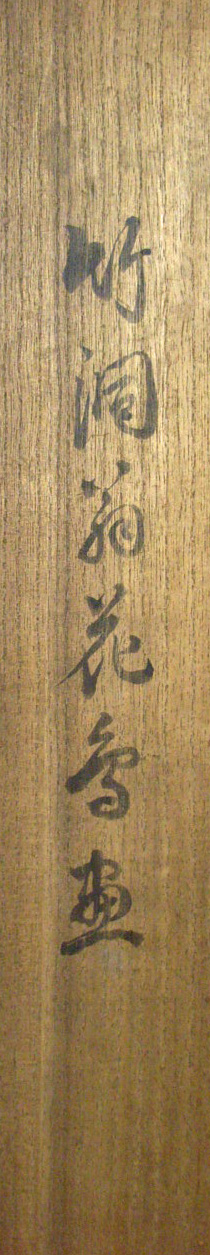 竹洞翁花鳥画